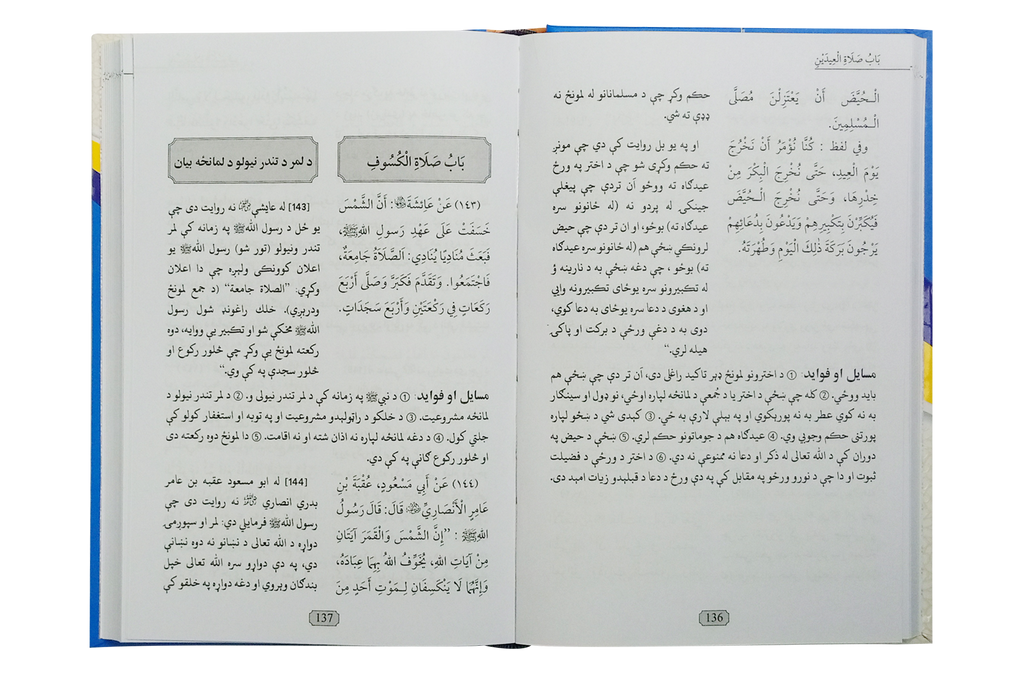 بَابُ صَلَاةِ الْعِيدَيْنِ
الْـحُيَّضَ أَنْ يَعْتَزِلْنَ مُصَلَّى
الْـمُسْلِمِينَ.
وفي لفظ : كُنَّا نُؤْمَرُ أَنْ نَخْرُجَ
يَوْمَ الْعِيدِ، حَتَّى نُخْرِجَ الْبِكْرَ مِنْ
خِدْرِهَا، وَحَتَّى نُخْرِجَ الْـحُيَّضَ
فَيُكَبِّرْنَ بِتَكْبِيرِهِمْ وَيَدْعُونَ بِدُعَائِهِمْ
يَرْجُونَ بَرَكَةَ ذَلِكَ الْيَوْمِ وَطُهْرَتَهُ.
حکم وکړ چې د مسلمانانو له لمونځ نه
ډډې ته شي.
او په یو بل روایت کې دي چې مونږ
ته حکم وکړی شو چې د اختر په ورځ
عیدګاه ته ووځو آن تردې چې پېغلې
جینکۍ له پردو نه (له ځانونو سره
عیدګاه ته) بوځو، او ان تر دې چې حیض
لرونکې ښځې هم (له ځانونو سره عیدګاه
ته) بوځو ، چې دغه ښځې به د نارینه ؤ
له تکبیرونو سره یوځای تکبیرونه وایي
او د هغوی د دعا سره یوځای به دعا کوي،
دوی به د دغې ورځې د برکت او پاکۍ
هیله لري.“
مسایل او فواید: ① د اخترونو لمونځ ډېر تاکید راغلی دی، آن تر دې چې ښځې هم
باید ووځي. ② کله چې ښځې د اختر یا د جُمعې د لمانځه لپاره اوځي، نو ډول او سینګار
به نه کوي عطر به نه پورېکوي او په بېلې لارې به ځي. ③ کېدی شي د ښځو لپاره
پورتنی حکم وجوبي وي. ④ عیدګاه هم د جوماتونو حکم لري. ⑤ ښځې د حیض په
دوران کې د الله تعالی له ذکر او دعا نه ممنوعې نه دي. ⑥ د اختر د ورځې د فضیلت
ثبوت او دا چې د نورو ورځو په مقابل کې په دې ورځ د دعا د قبلېدو زیات امېد دی.
136
بَابُ صَلَاةِ الْكُسُوفِ
د لمر د تندر نیولو د لمانځه بیان
(١٤٣) عَنْ عَائِشَةَ ﵂: أَنَّ الشَّمْسَ
خَسَفَتْ عَلَى عَهْدِ رَسولِ اللهِ ﷺ،
فَبَعَثَ مُنَادِيًا يُنَادِي: اَلصَّلَاةُ جَامِعَةٌ،
فَاجْتَمَعُوا. وَتَقَدَّمَ فَكَبَّرَ وَصَلَّى أَرْبَعَ
رَكَعَاتٍ فِي رَكْعَتَيْنِ وَأَرْبَعَ سَجَدَاتٍ.
[143] له عایشې ﵂ نه روایت دی چې
یو ځل د رسول الله ﷺ په زمانه کې لمر
تندر ونیولو (تور شو) رسول الله ﷺ یو
اعلان کوونکی ولېږه چې دا اعلان
وکړي: ”الصلاة جامعة“ (د جمع لمونځ
ودرېږي). خلك راغونډ شول رسول
الله ﷺ مخکې شو او تکبیر یې ووایه، دوه
رکعته لمونځ یې وکړ چې څلور رکوع او
څلور سجدې په کې وې.“
مسایل او فواید: ① د نبي ﷺ په زمانه کې د لمر تندر نیولی و. ② د لمر تندر نیولو د
لمانځه مشروعیت. ③ د خلکو د راټولېدو مشروعیت او په توبه او استغفار کولو کې
جلتي کول. ④ د دغه لمانځه لپاره نه اذان شته او نه اقامت. ⑤ دا لمونځ دوه رکعته دی
او څلور رکوع ګانې په کې دي.
(١٤٤) عَنْ أَبِي مَسْعُودٍ، عُقْبَةَ بْنِ
عَامِرٍ الْأَنْصَارِيِّ ﵁ قَالَ: قَالَ رَسُولُ
اللهِ ﷺ : ”إِنَّ الشَّمْسَ وَالْقَمَرَ آيَتَانِ
مِنْ آيَاتِ اللهِ، يُخَوِّفُ اللهُ بِهِمَا عِبَادَهُ،
وَإِنَّهُمَا لَا يَنْكَسِفَانِ لِـمَوْتِ أَحَدٍ مِنَ
[144] له ابو مسعود عقبه بن عامر
بدري انصاري ﵁ نه روایت دی چې
رسول الله ﷺ فرمایلي دي: لمر او سپوږمۍ
دواړه د الله تعالی د نښانو نه دوه نښانې
دي، په دې دواړو سره الله تعالی خپل
بندګان وېروي او دغه دواړه په خلقو کې
137